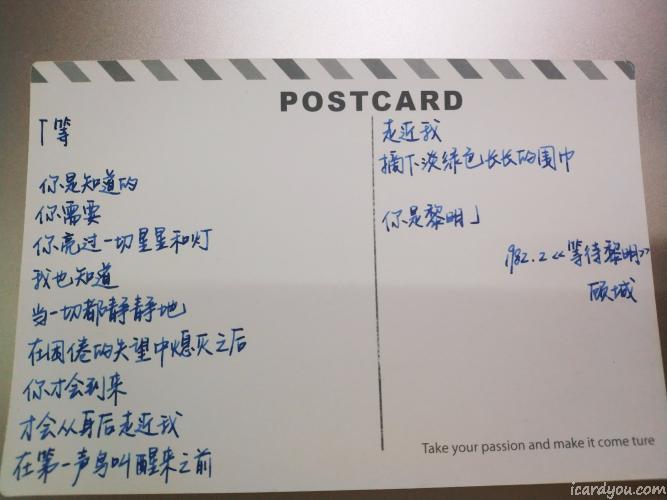 POSTCARD
「等
你是知道的
你需要
你亮过一切星星和灯
我也知道
当一切都静静地
在困倦的失望中熄灭之后
你才会到来
才会从身后走近我
在第一声鸟叫醒来之前
走近我
摘下淡绿色长长的围巾
你是黎明」
1982.2《等待黎明》
顾城
Take your passion and make it come ture
icardyou.com